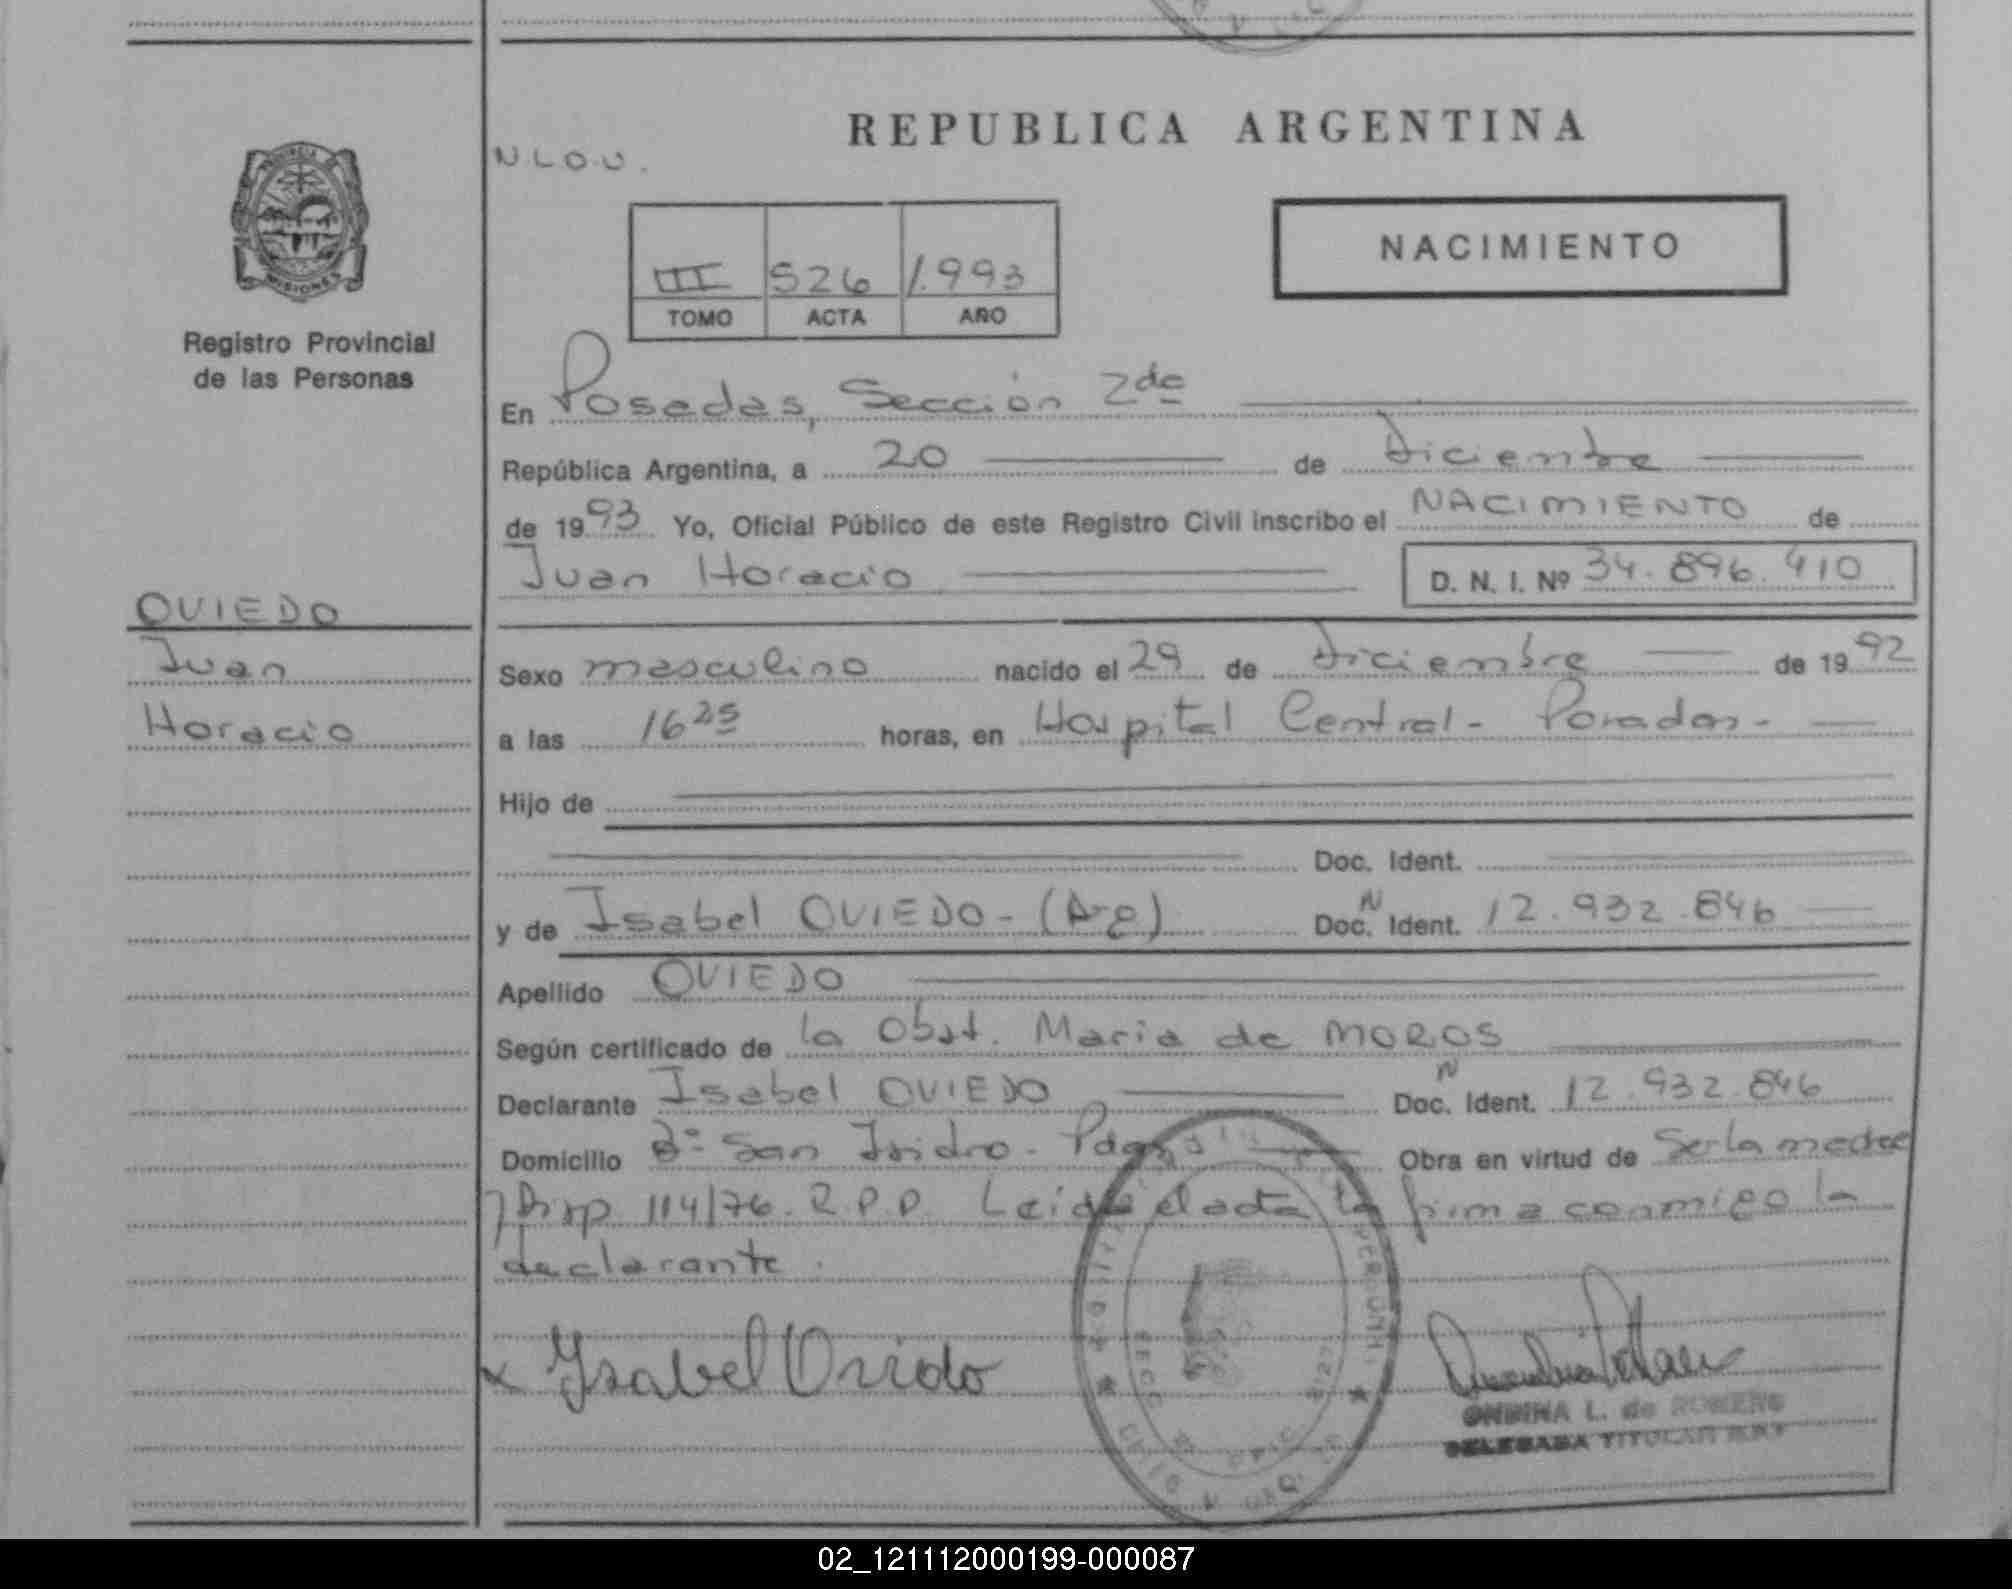 REPUBLICA ARGENTINA
N.L.O.U.
NACIMIENTO
III 526 1.993
TOMO ACTA AÑO
PROVINCIA DE
MISIONES
Registro Provincial
de las Personas
OVIEDO
Juan
Horacio
En Posadas, Sección 2da
República Argentina, a 20 de Diciembre
de 1993 Yo, Oficial Público de este Registro Civil inscribo el NACIMIENTO de
Juan Horacio D. N. I. Nº 34.896.410
Sexo masculino nacido el 29 de Diciembre de 1992
a las 16 25 horas, en Hospital Central - Posadas -
Hijo de
Doc. Ident.
y de Isabel OVIEDO - (Arg) Doc. N Ident. 12.932.846
Apellido OVIEDO
Según certificado de la Obst. Maria de MOROS
Declarante Isabel OVIEDO Doc. N Ident. 12.932.846
Domicilio Bº San Isidro - Pdas Obra en virtud de Ser la madre
y Disp 114/76. R.P.P. Leida el acta la firma conmigo la
declarante.
x Isabel Oviedo
ONDINA L. de ROMERO
DELEGADA TITULAR
02_121112000199-000087